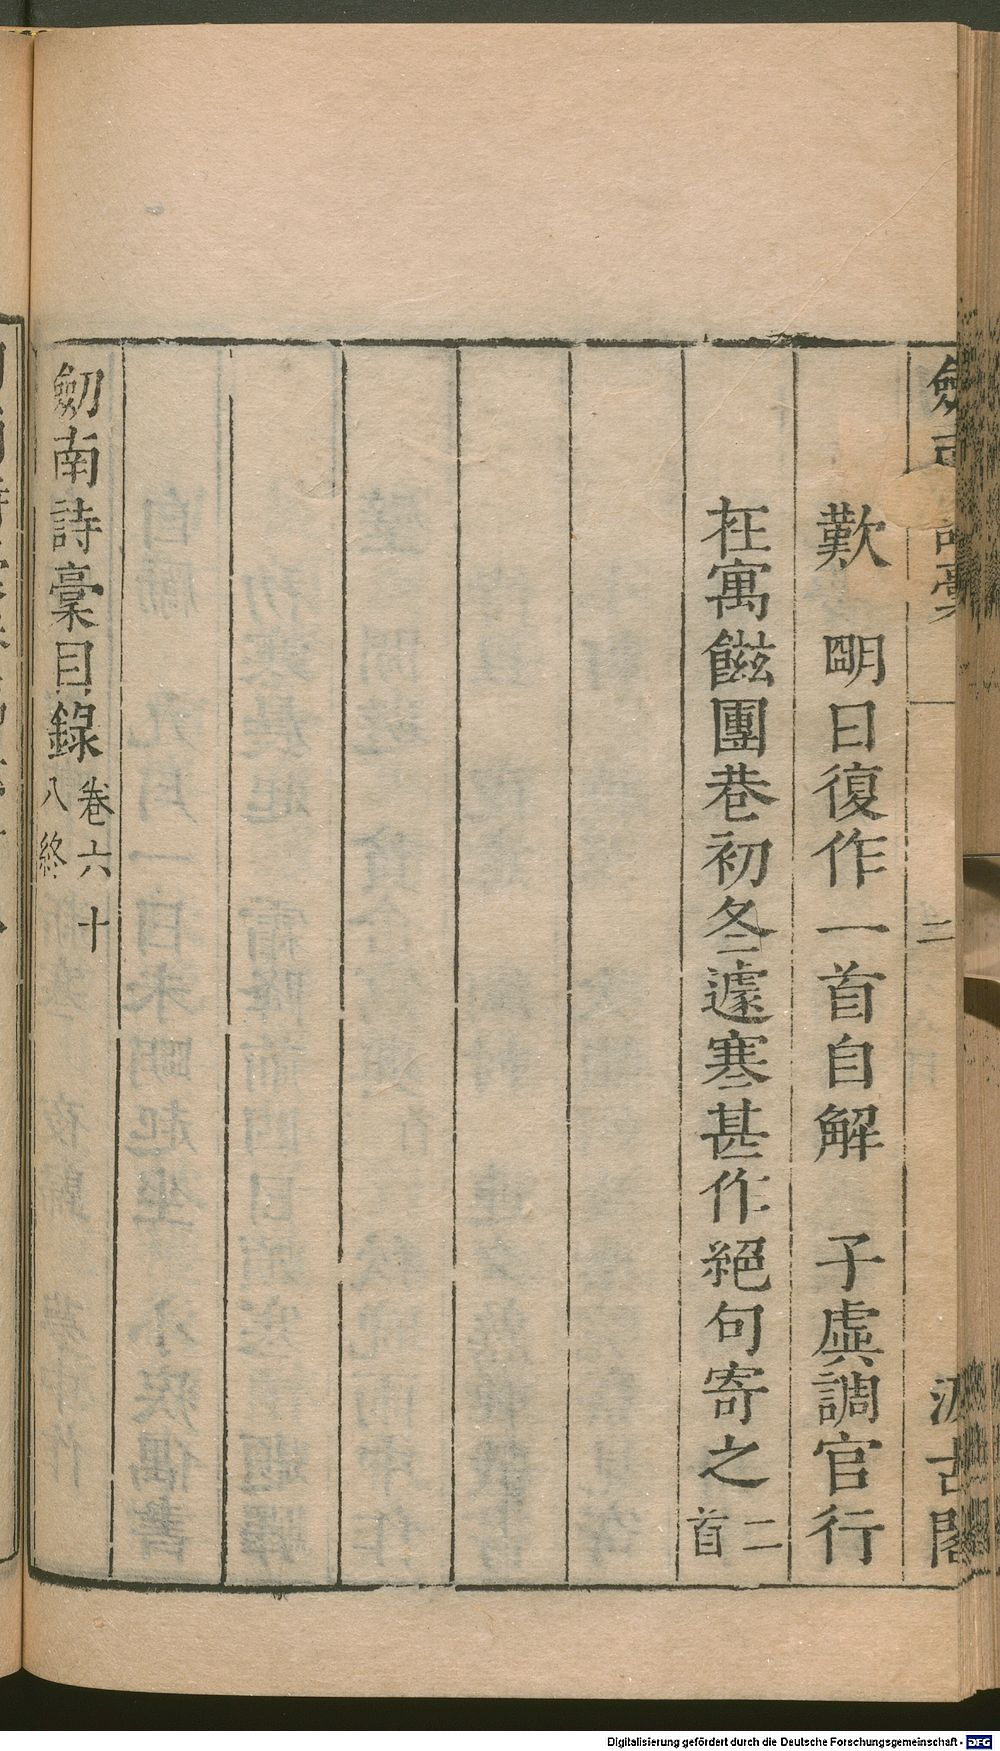 歎　朙日復作一首自解　子虡調官行
在寓𨢩團巷初冬遽寒甚作絕句寄之二首
劒南詩稾目錄卷六十八終
二
汲古閣
Digitalisierung gefördert durch die Deutsche Forschungsgemeinschaft - DFG